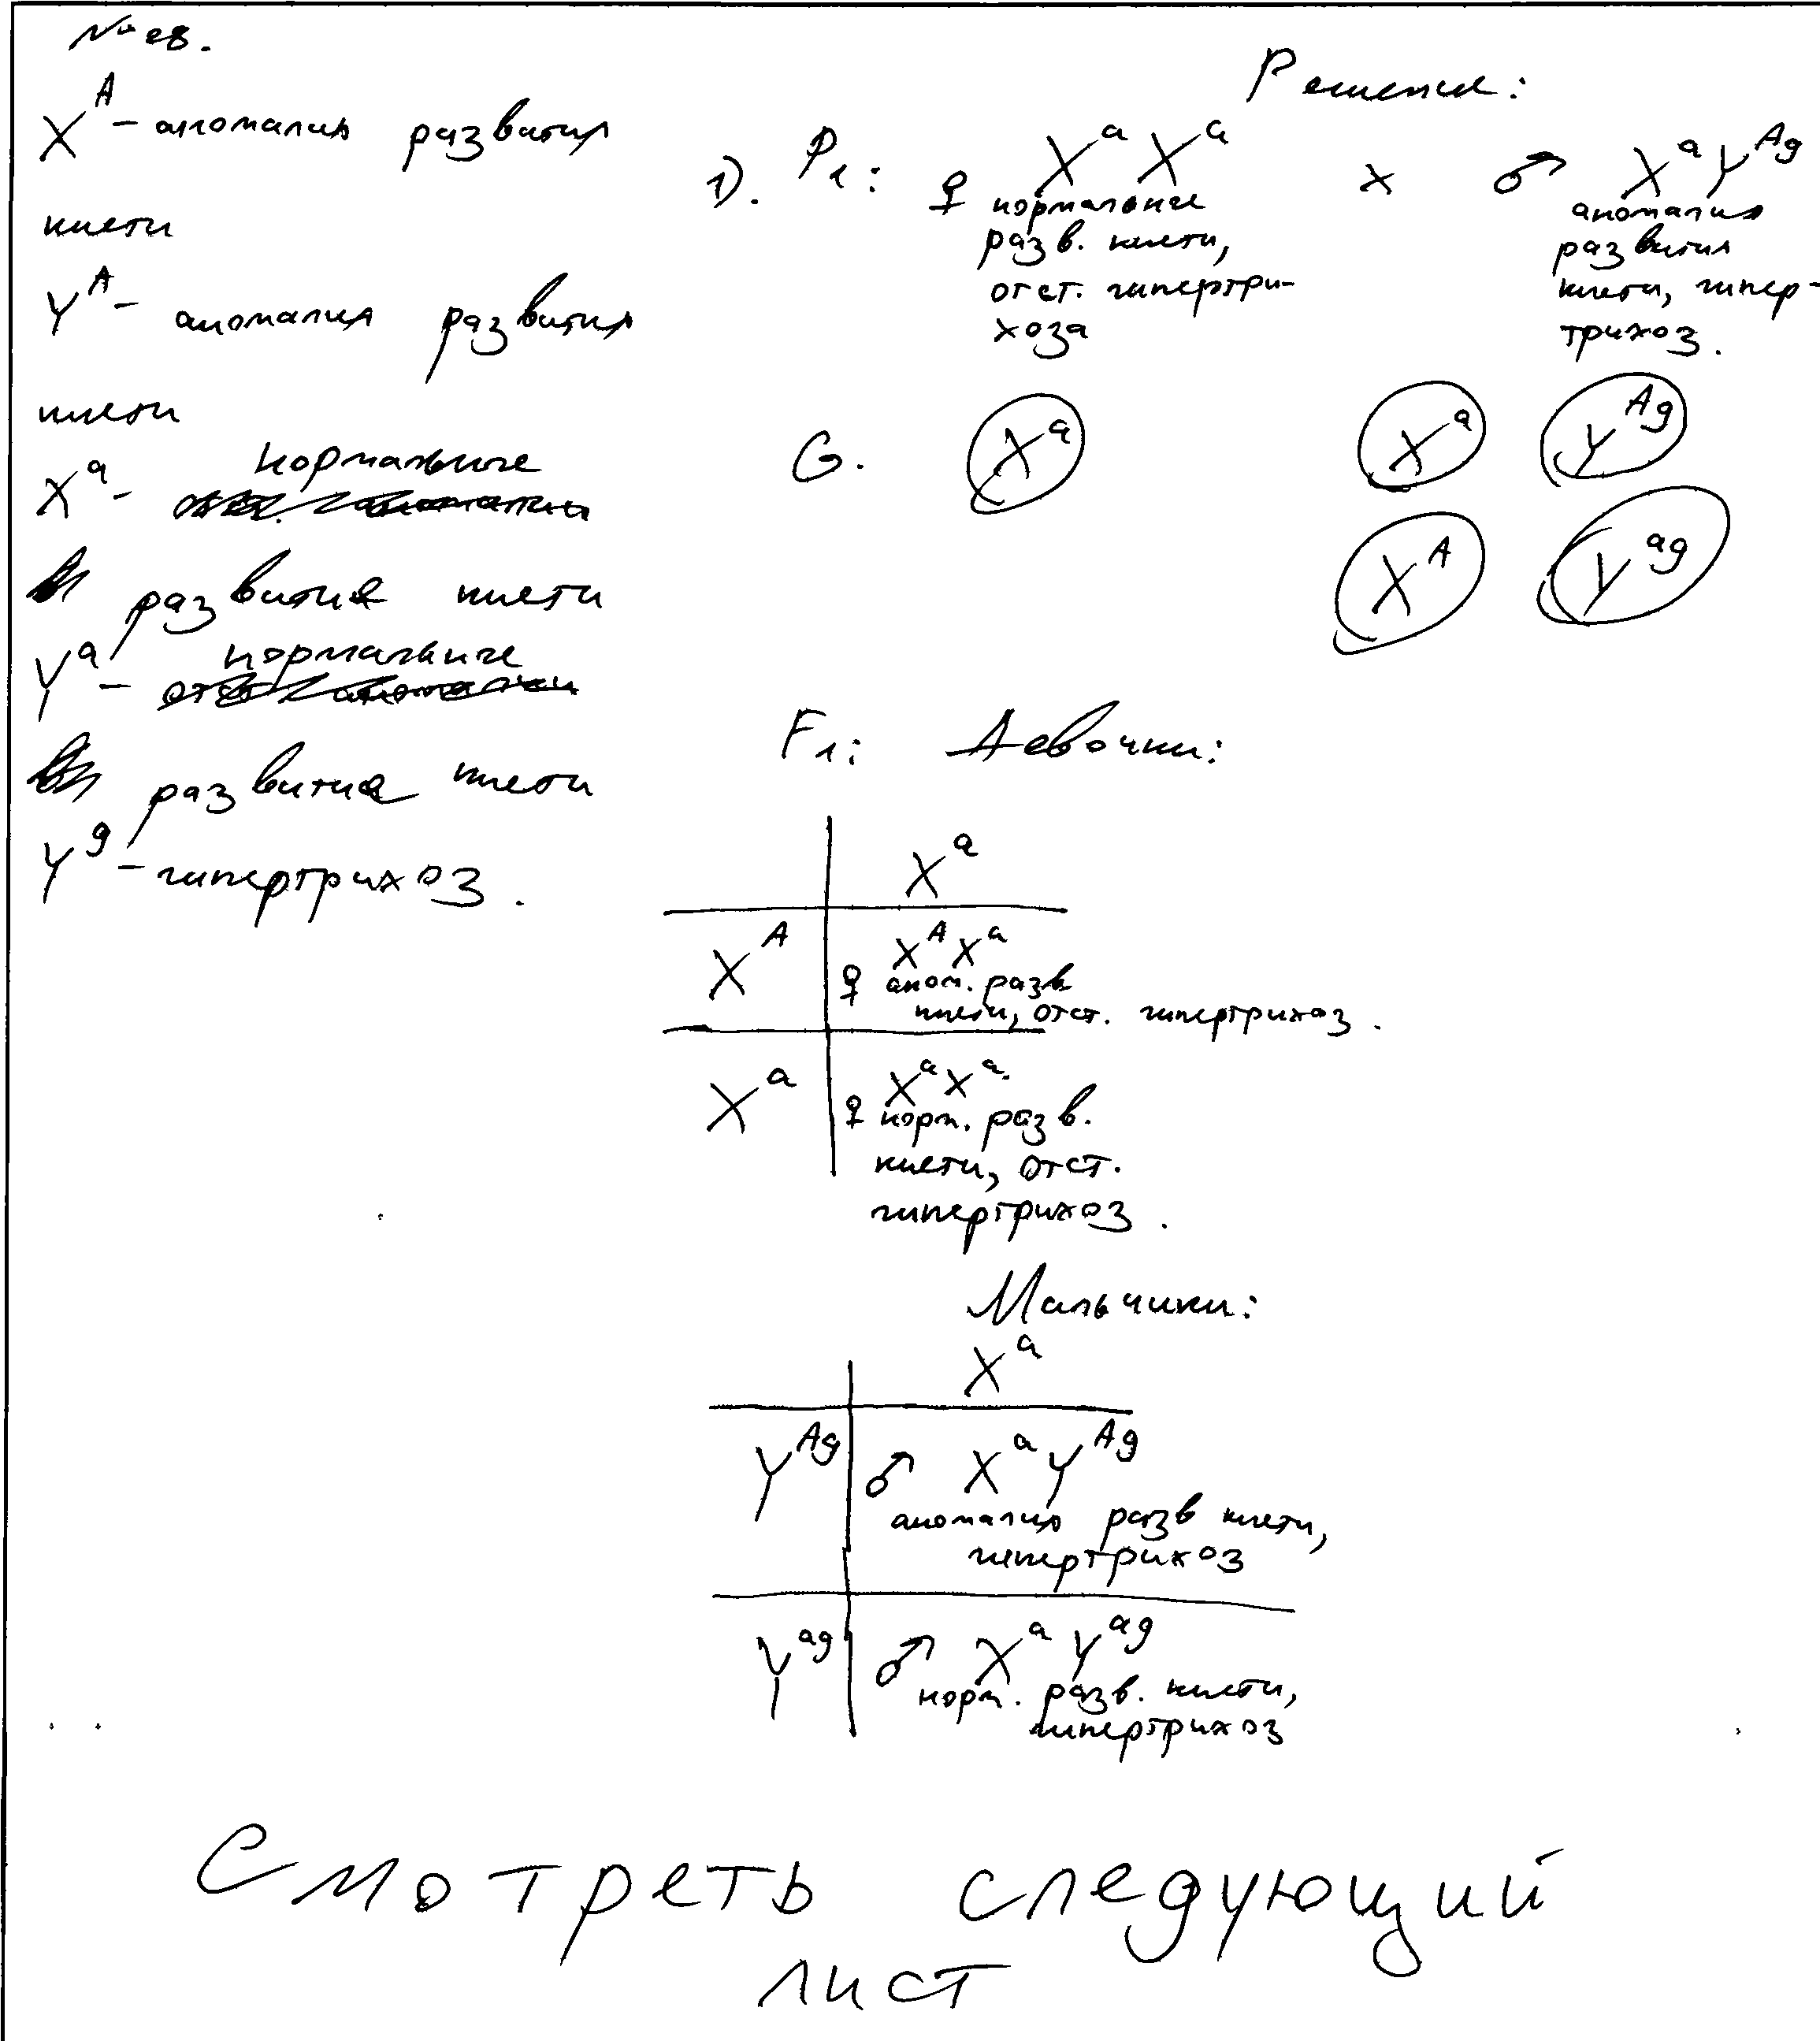 №28.
X^A – аномалия развития
кисти
Y^A – аномалия развития
кисти
нормальное
X^a –
развитие кисти
нормальное
Y^a –
развитие кисти
Y^g – гипертрихоз.
Решение:
1). P₁: ♀ X^a X^a x ♂ X^a Y^Ag
нормальное
разв. кисти,
отст. гипертри-
хоза
аномалия
развития
кисти, гипер-
трихоз.
G. X^a X^a Y^Ag
X^A Y^ag
F₁: Девочки:
X^a
X^A ♀ X^A X^a
аном. разв
кисти, отст. гипертрихоз.
X^a ♀ X^a X^a
норм. разв.
кисти, отст.
гипертрихоз.
Мальчики:
X^a
Y^Ag ♂ X^a Y^Ag
аномалия разв кисти,
гипертрихоз
Y^ag ♂ X^a Y^ag
норм. разв. кисти,
гипертрихоз
Смотреть следующий
лист